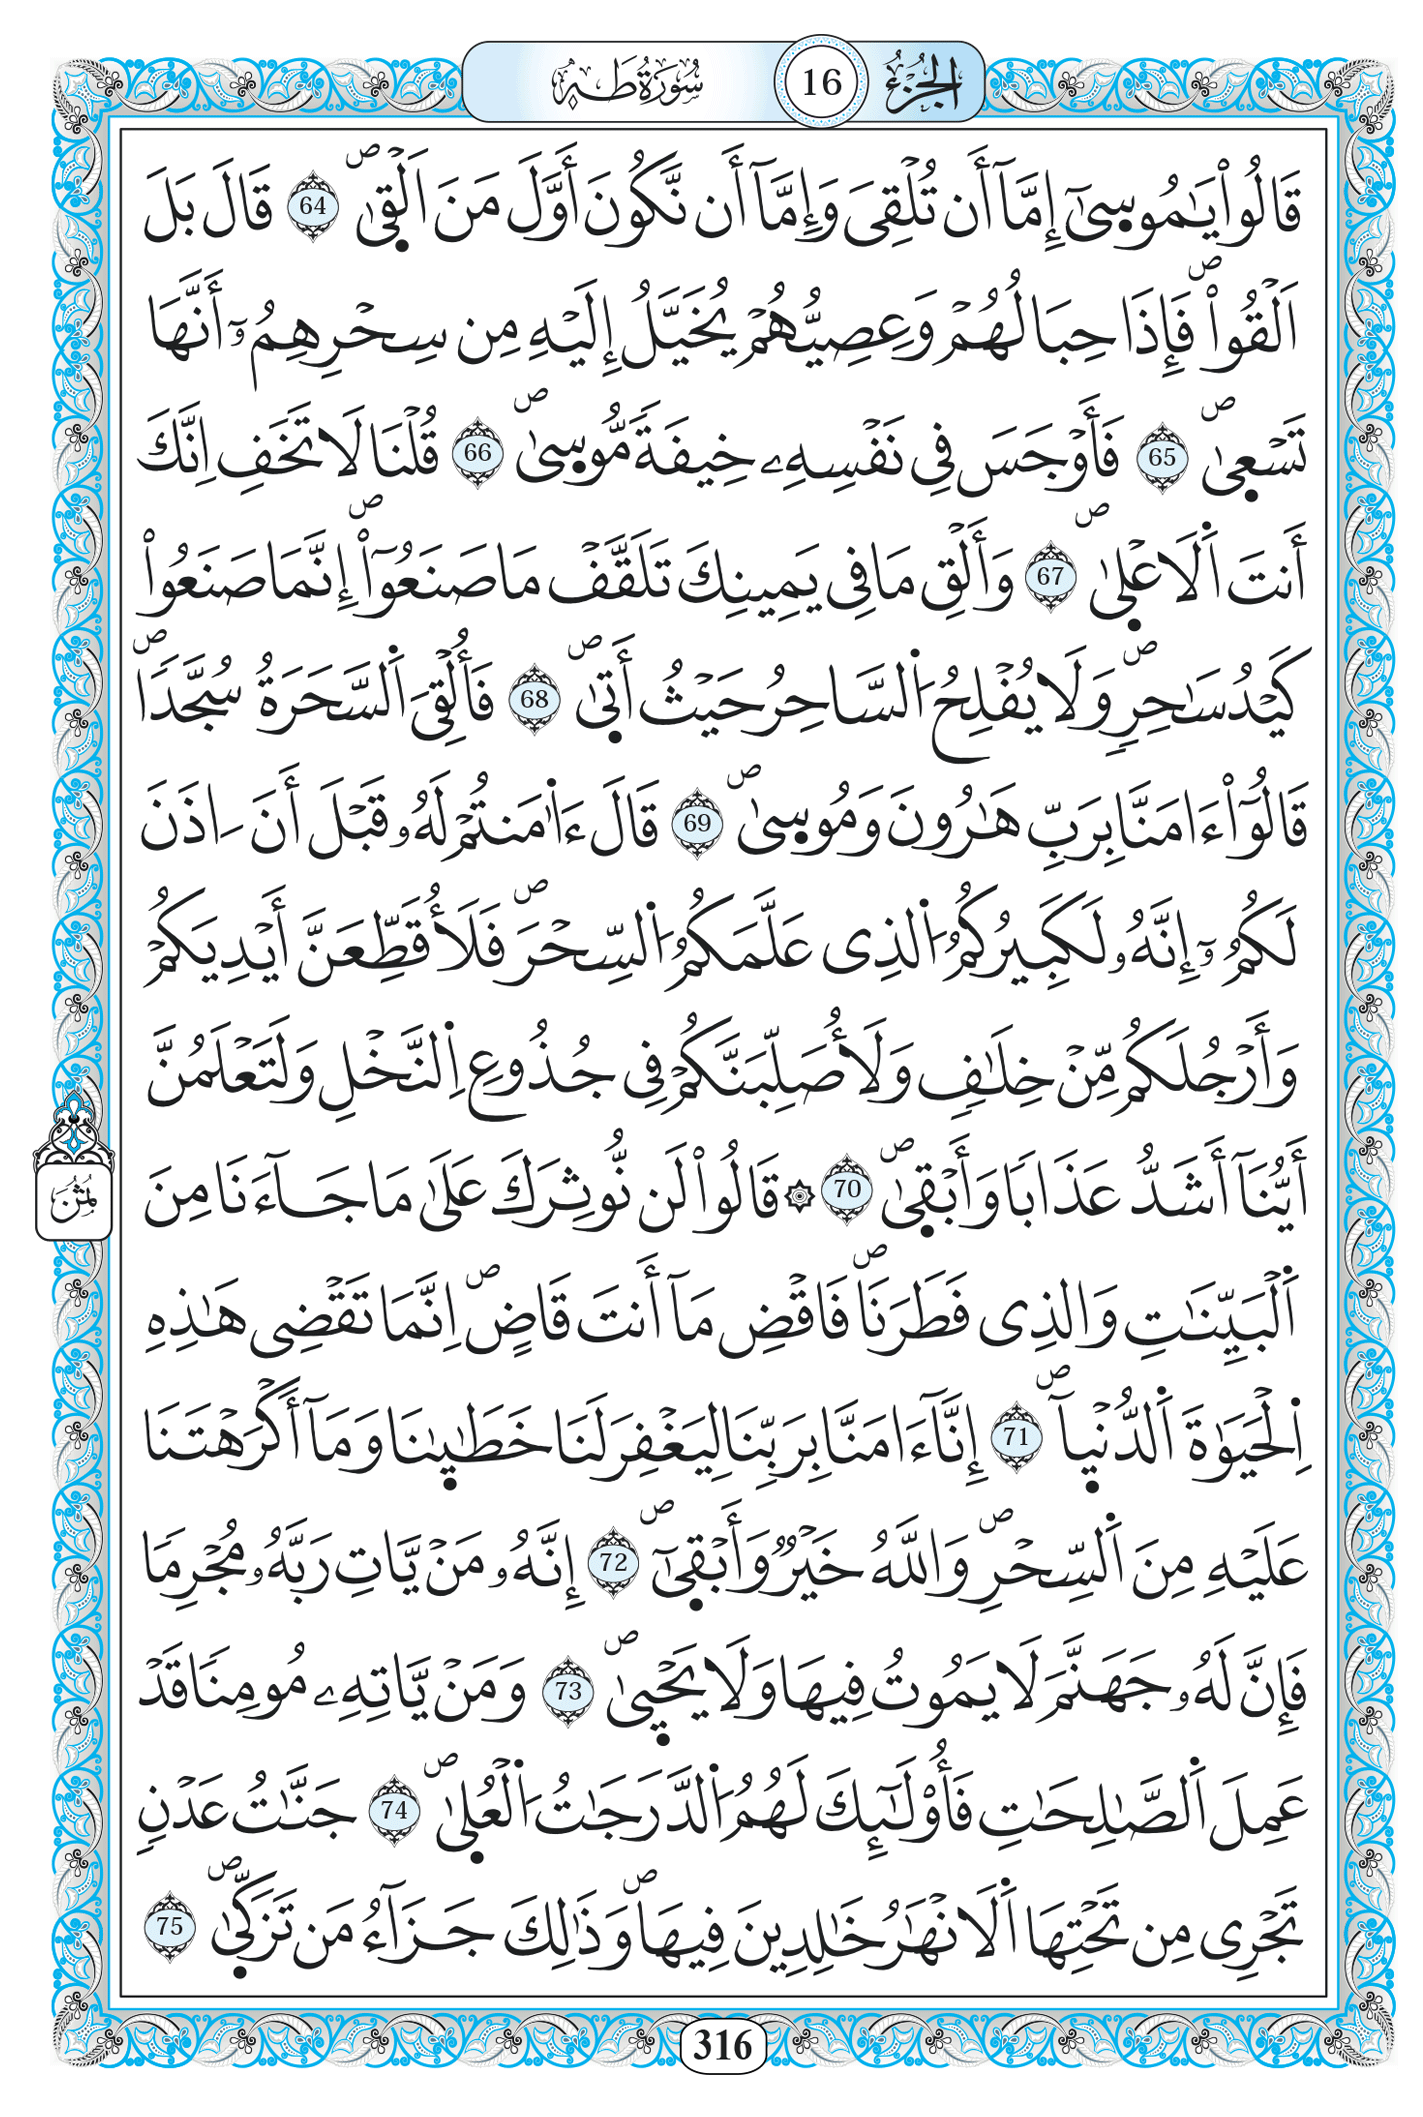 الجزء 16 سورة طه
قَالُواْ يَٰمُوسۭيٰٓ إِمَّآ أَن تُلْقِيَ وَإِمَّآ أَن نَّكُونَ أَوَّلَ مَنَ اَلْقۭيٰۖ 64 قَالَ بَلَ
اَلْقُواْۖ فَإِذَا حِبَالُهُمْ وَعِصِيُّهُمْ يُخَيَّلُ إِلَيْهِ مِن سِحْرِهِمُۥٓ أَنَّهَا
تَسْعۭيٰۖ 65 فَأَوْجَسَ فِي نَفْسِهِۦ خِيفَةٗ مُّوسۭيٰۖ 66 قُلْنَا لَا تَخَفِ اِنَّكَ
أَنتَ اَ۬لَاعْلۭيٰۖ 67 وَأَلْقِ مَا فِي يَمِينِكَ تَلَقَّفْ مَا صَنَعُوٓاْۖ إِنَّمَا صَنَعُواْ
كَيْدُ سَٰحِرٖۖ وَلَا يُفْلِحُ اُ۬لسَّاحِرُ حَيْثُ أَتۭيٰۖ 68 فَأُلْقِيَ اَ۬لسَّحَرَةُ سُجَّدٗاۖ
قَالُوٓاْ ءَامَنَّا بِرَبِّ هَٰرُونَ وَمُوسۭيٰۖ 69 قَالَ ءَا۬مَنتُمْ لَهُۥ قَبْلَ أَنَ اٰذَنَ
لَكُمُۥٓ إِنَّهُۥ لَكَبِيرُكُمُ اُ۬لذِي عَلَّمَكُمُ اُ۬لسِّحْرَۖ فَلَأُقَطِّعَنَّ أَيْدِيَكُمْ
وَأَرْجُلَكُم مِّنْ خِلَٰفٖ وَلَأُصَلِّبَنَّكُمْ فِي جُذُوعِ اِ۬لنَّخْلِ وَلَتَعْلَمُنَّ
أَيُّنَآ أَشَدُّ عَذَابٗا وَأَبْقۭيٰۖ 70 ۞ قَالُواْ لَن نُّوثِرَكَ عَلَىٰ مَا جَآءَنَا مِنَ
اَ۬لْبَيِّنَٰتِ وَالذِي فَطَرَنَاۖ فَاقْضِ مَآ أَنتَ قَاضٍۖ اِنَّمَا تَقْضِي هَٰذِهِ
اِ۬لْحَيَوٰةَ اَ۬لدُّنْيۭآۖ 71 إِنَّآ ءَامَنَّا بِرَبِّنَا لِيَغْفِرَ لَنَا خَطَٰيٰۭنَا وَمَآ أَكْرَهْتَنَا
عَلَيْهِ مِنَ اَ۬لسِّحْرِۖ وَاللَّهُ خَيْرٞ وَأَبْقۭيٰٓۖ 72 إِنَّهُۥ مَنْ يَّاتِ رَبَّهُۥ مُجْرِمٗا
فَإِنَّ لَهُۥ جَهَنَّمَ لَا يَمُوتُ فِيهَا وَلَا يَحْيۭيٰۖ 73 وَمَنْ يَّاتِهِۦ مُومِنٗا قَدْ
عَمِلَ اَ۬لصَّٰلِحَٰتِ فَأُوْلَٰٓئِكَ لَهُمُ اُ۬لدَّرَجَٰتُ اُ۬لْعُلۭيٰۖ 74 جَنَّٰتُ عَدْنٖ
تَجْرِي مِن تَحْتِهَا اَ۬لَانْهَٰرُ خَٰلِدِينَ فِيهَاۖ وَذَٰلِكَ جَزَآءُ مَن تَزَكّۭيٰۖ 75
ثمن
316